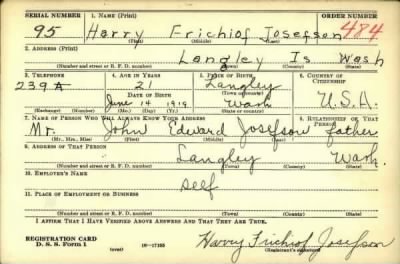 SERIAL NUMBER 1. NAME (Print) ORDER NUMBER
95 Harry Frichiof Josefson 484
(First) (Middle) (Last)
2. ADDRESS (Print)
Langley Is Wash
(Number and street or R. F. D. number) (Town) (County) (State)
3. TELEPHONE 4. AGE IN YEARS 5. PLACE OF BIRTH 6. COUNTRY OF CITIZENSHIP
239A 21 Langley
DATE OF BIRTH (Town or county)
June 14 1919 Wash U.S.A.
(Exchange) (Number) (Mo.) (Day) (Yr.) (State or country)
7. NAME OF PERSON WHO WILL ALWAYS KNOW YOUR ADDRESS 8. RELATIONSHIP OF THAT PERSON
Mr. John Edward Josefson father
(Mr., Mrs., Miss) (First) (Middle) (Last)
9. ADDRESS OF THAT PERSON
Langley Wash.
(Number and street or R. F. D. number) (Town) (County) (State)
10. EMPLOYER'S NAME
self
11. PLACE OF EMPLOYMENT OR BUSINESS
(Number and street or R. F. D. number) (Town) (County) (State)
I AFFIRM THAT I HAVE VERIFIED ABOVE ANSWERS AND THAT THEY ARE TRUE.
REGISTRATION CARD
D. S. S. Form 1 (over) 16-17105 Harry Frichiof Josefson
(Registrant's signature)